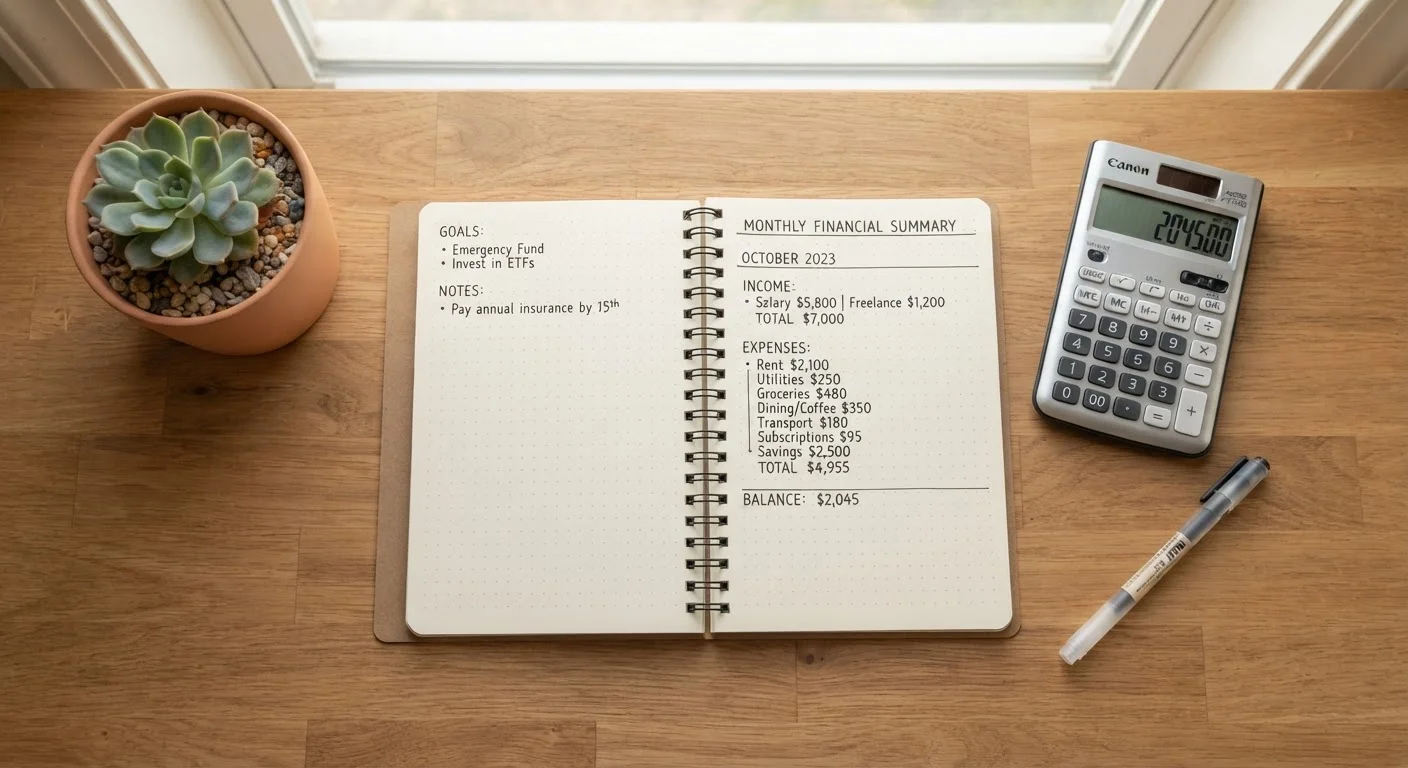 GOALS:
• Emergency Fund
• Invest in ETFs
NOTES:
• Pay annual insurance by 15th
MONTHLY FINANCIAL SUMMARY
OCTOBER 2023
INCOME:
• Salary $5,800 | Freelance $1,200
TOTAL $7,000
EXPENSES:
• Rent $2,100
Utilities $250
Groceries $480
Dining/Coffee $350
Transport $180
Subscriptions $95
Savings $2,500
TOTAL $4,955
BALANCE: $2,045
Canon
204500
MC
7 8 9 9 ÷
4 5 5 6 ×
1 2 3 3 −
0 00 · = +